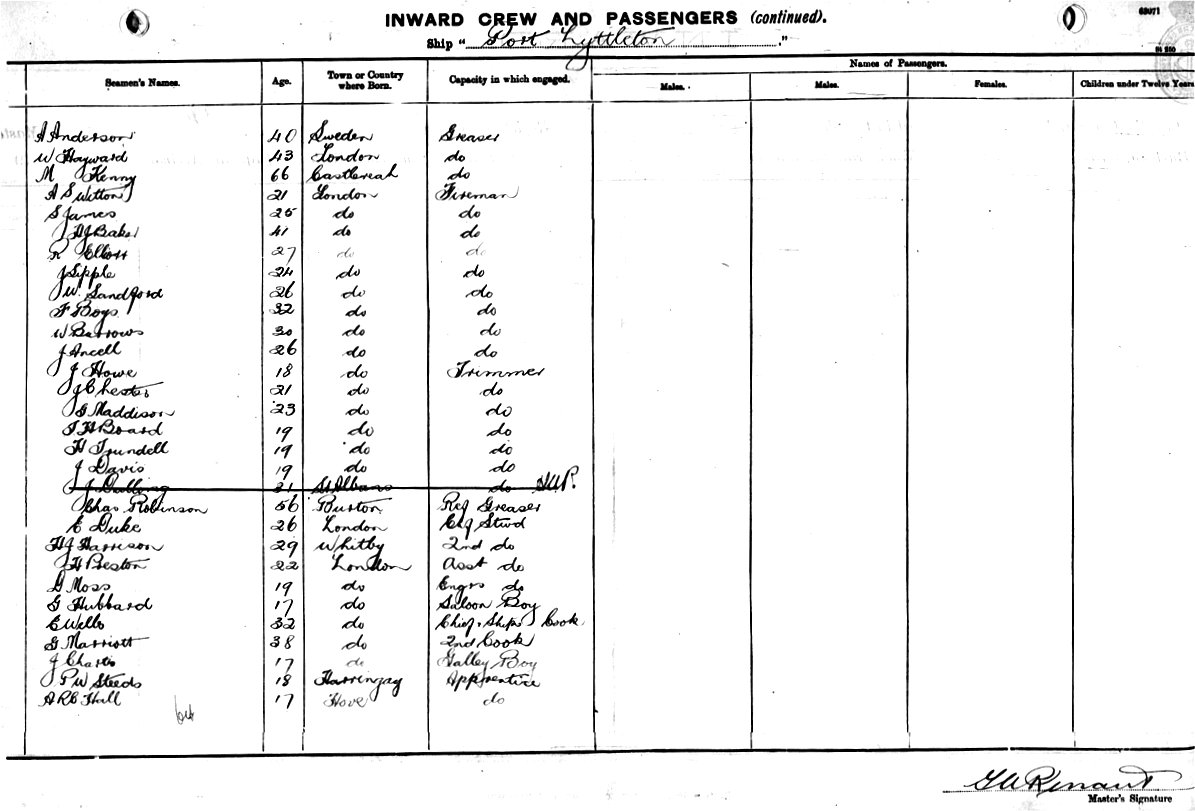 INWARD CREW AND PASSENGERS (continued).
63071
Ship " Port Lyttleton ."
Seamen's Names. Age. Town or Country where Born. Capacity in which engaged. Names of Passengers.
Males. Males. Females. Children under Twelve Years
A Anderson 40 Sweden Greaser
W Hayward 43 London do
M Kenny 66 Castlereah do
A S Witton 21 London Fireman
S James 25 do do
A J Baker 41 do do
R Elliott 27 do do
J Sipple 24 do do
W. Sandford 26 do do
F Boys 32 do do
W Barrows 30 do do
J Ancell 26 do do
J Howe 18 do Trimmer
J Chester 21 do do
G Maddison 23 do do
T H Board 19 do do
H Trundell 19 do do
J Davis 19 do do
J 21 St Albans do
Chas Robinson 56 Burton Ref Greaser
E Duke 26 London Chf Stwd
H J Harrison 29 Whitby 2nd do
H Preston 22 London Asst do
G Moss 19 do Engrs do
G Hubbard 17 do Saloon Boy
E Wells 32 do Chief Ships Cook
G Marriott 38 do 2nd Cook
J Charte 17 do Galley Boy
P W Steeds 18 Harringay Apprentice
A R C Hall 17 Hove do
64
Master's Signature